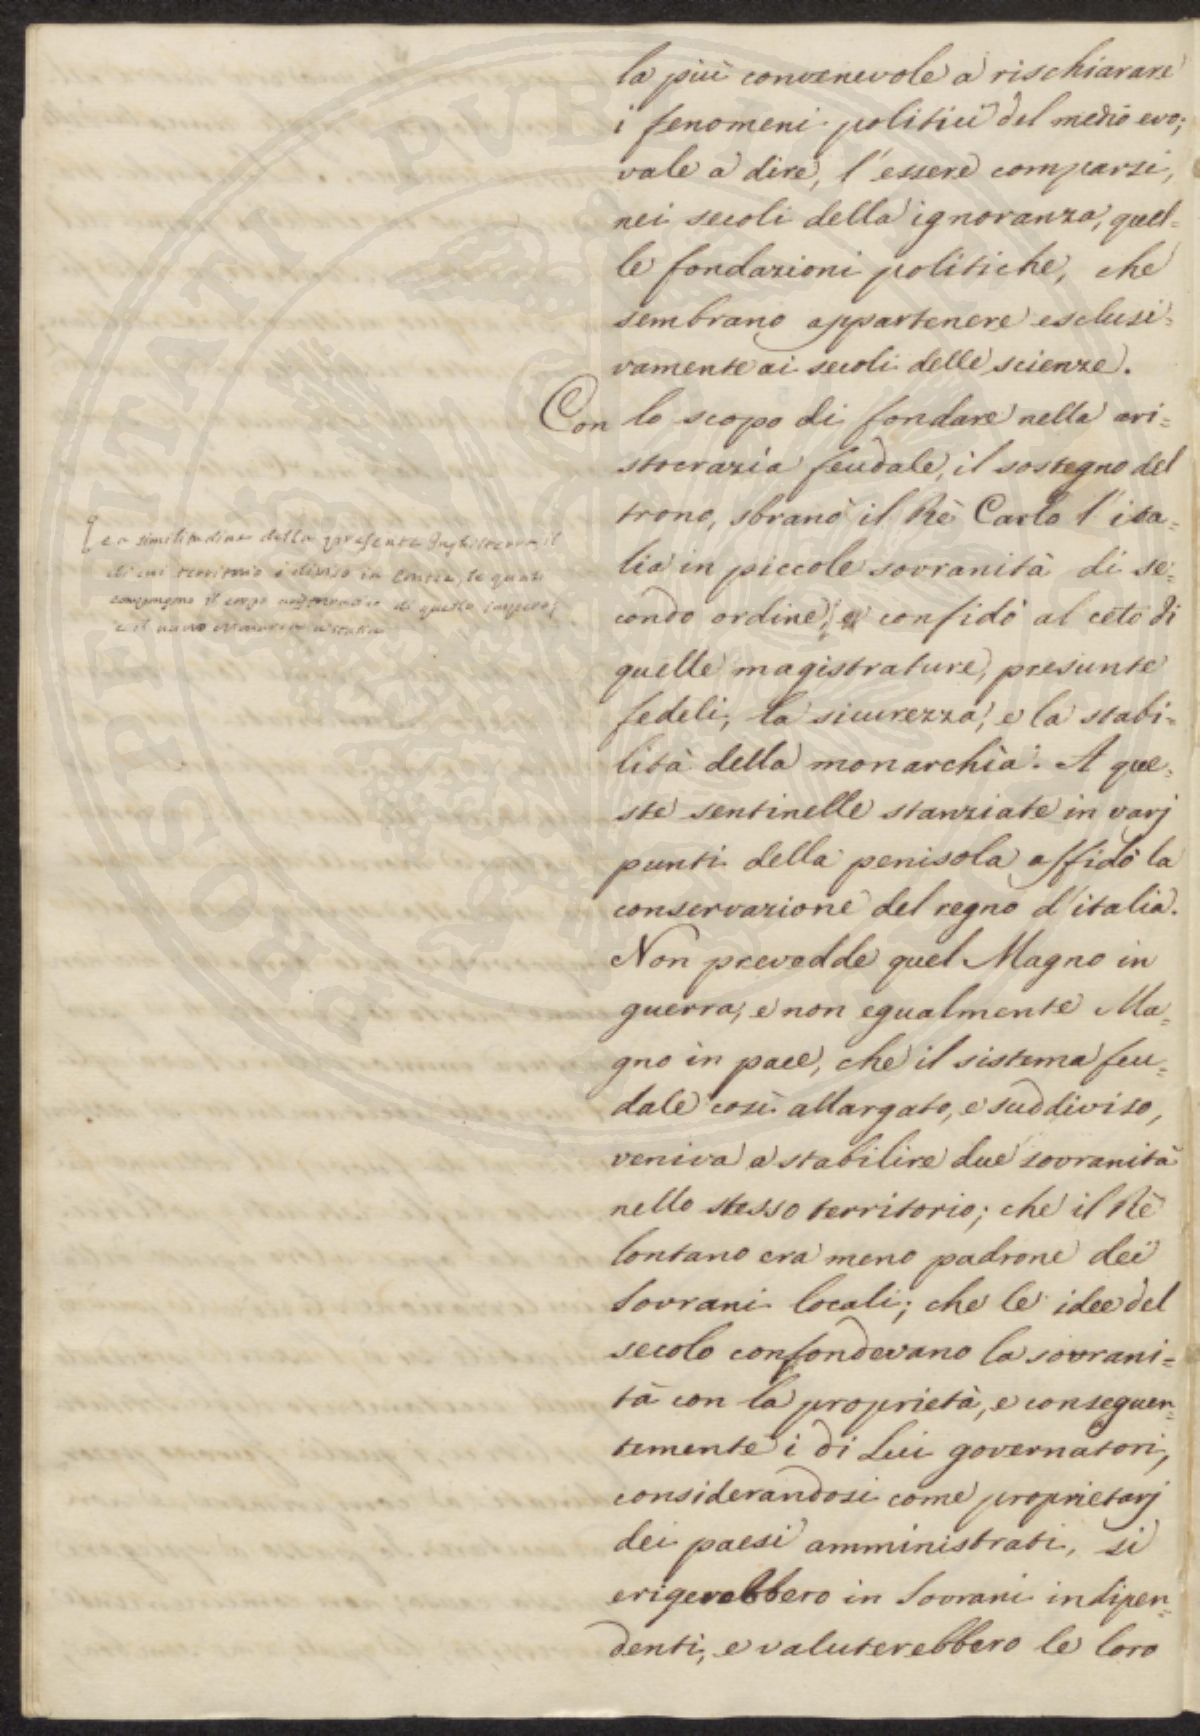 la più convenevole a rischiarare
i fenomeni politici del medio evo;
vale a dire, l'essere comparsi,
nei secoli della ignoranza, quel=
le fondazioni politiche, che
sembrano appartenere esclusi=
vamente ai secoli delle scienze.
Con lo scopo di fondare nella ari=
stocrazia feudale, il sostegno del
trono, sbranò il Rè Carlo l'ita=
lia in piccole sovranità di se=
condo ordine; e confidò al ceto di
quelle magistrature, presunte
fedeli, la sicurezza, e la stabi=
lità della monarchìa. A que=
ste sentinelle stanziate in varj
punti della penisola affidò la
conservazione del regno d'italia.
Non prevedde quel Magno in
guerra, e non egualmente Ma=
gno in pace, che il sistema feu=
dale così allargato, e suddiviso,
veniva a stabilire due sovranità
nello stesso territorio; che il Rè
lontano era meno padrone dei
Sovrani locali; che le idee del
secolo confondevano la sovrani=
tà con la proprietà, e conseguen=
temente i di Lui governatori,
considerandosi come proprietarj
dei paesi amministrati, si
erigerebbero in Sovrani indipen=
denti, e valuterebbero le loro
e a similitudine della presente Inghilterra il
di cui territorio è diviso in Contee, le quali
compongono il corpo di questo impero;
e il
PROSPERITATI PUBLICAE